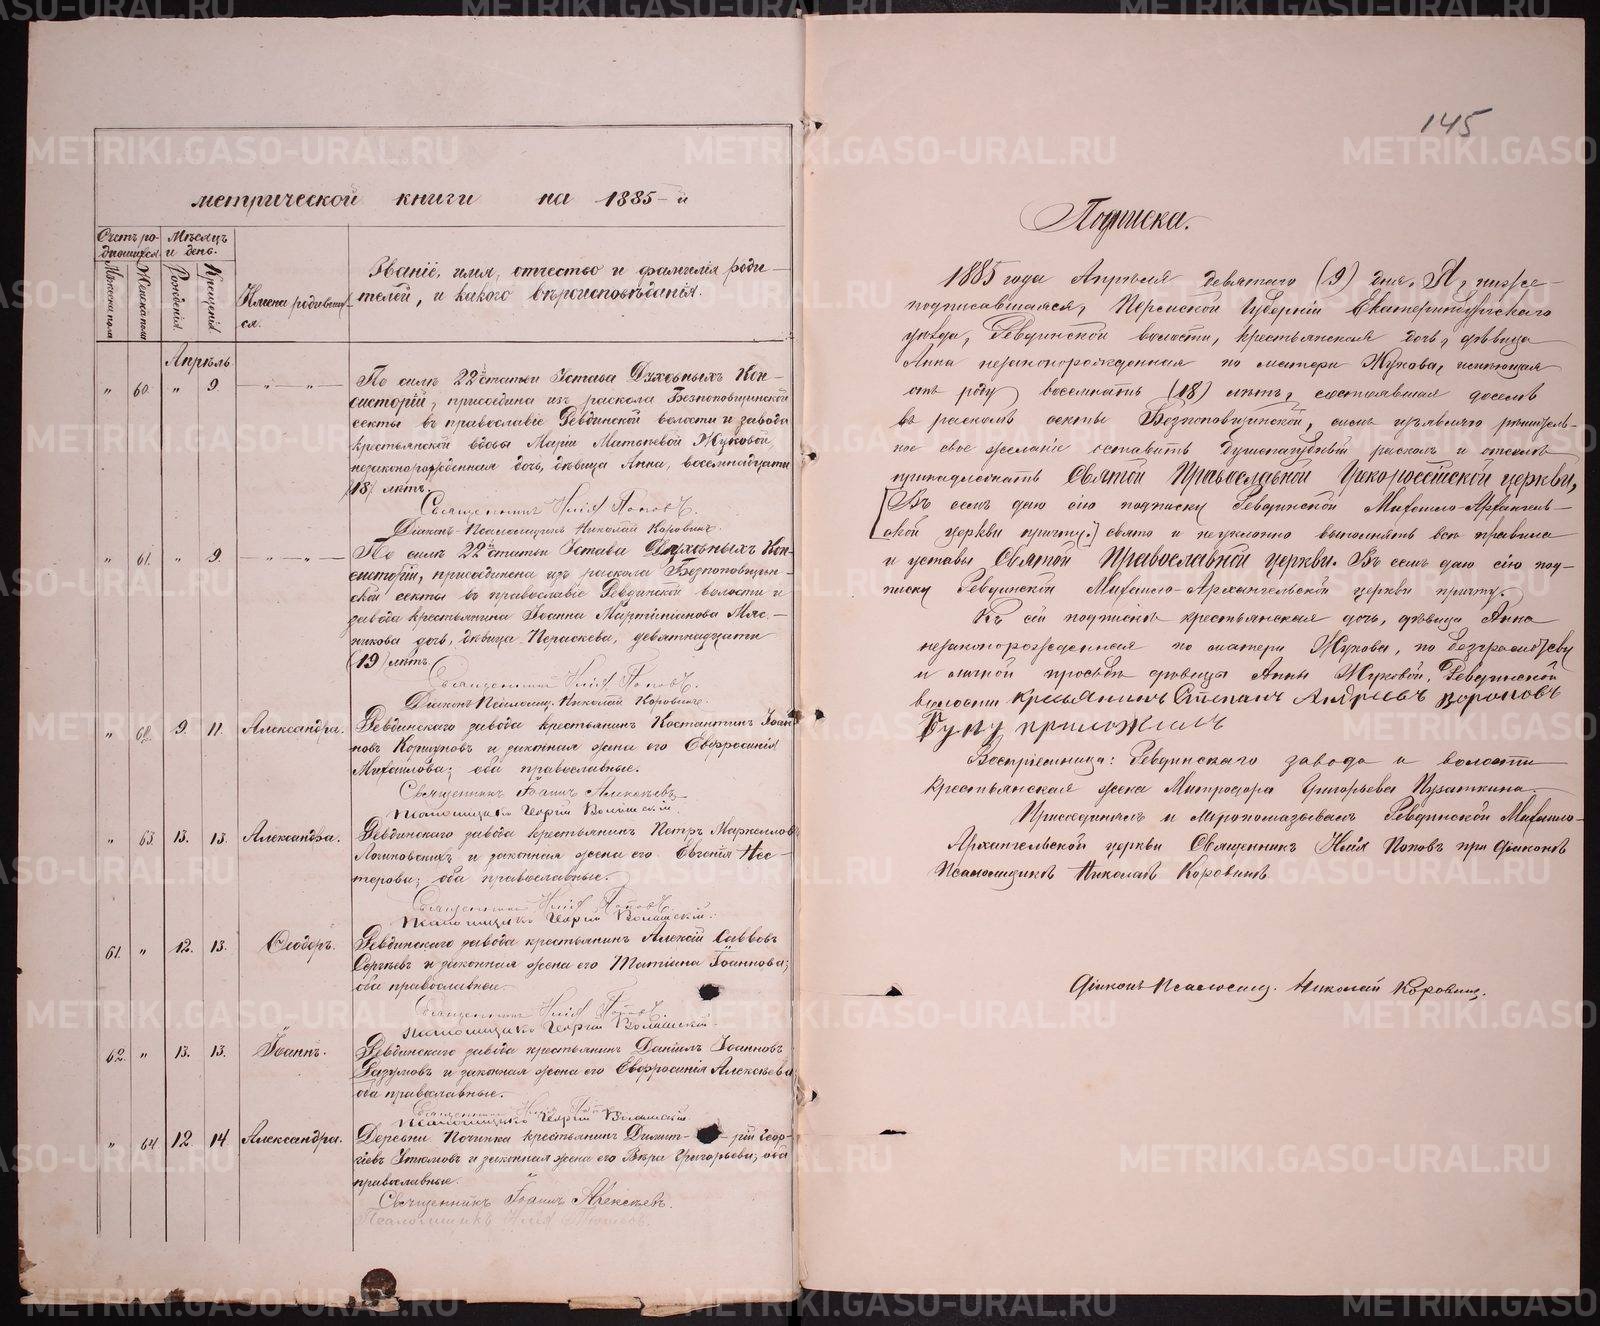 метрической книги на 1885-й
Счетъ ро-
дившихся.
Мѣсяцъ
и день.
Мужеска пола
Женска пола
Рожденія.
Крещенія.
Имена родивших-
ся.
Званіе, имя, отчество и фамилія роди-
телей, и какого вѣроисповѣданія.
Апрѣль
" 60. " 9. — " — " —
По силѣ 22й статьи Устава Духовныхъ Кон-
систорій, присоедина изъ раскола Безпоповщинской
секты въ православіе Ревдинской волости и завода
крестьянской вдовы Маріи Матвѣевой Жуковой
незаконорожденная дочь, дѣвица Анна, восемнадцати
(18) лѣтъ.
Священникъ Илія Поповъ.
Діаконъ-Псаломщикъ Николай Коровинъ.
" 61. " 9. — " — " —
По силѣ 22й статьи Устава Духовныхъ Кон-
систорій, присоединена изъ раскола Безпоповщин-
ской секты въ православіе Ревдинской волости и
завода крестьянина Іоанна Мартиніанова Мяс-
никова дочь, дѣвица Параскева, девятнадцати
(19) лѣтъ.
Священникъ Илія Поповъ.
Діаконъ-Псаломщ. Николай Коровинъ.
" 62. 9. 11. Александра.
Ревдинскаго завода крестьянинъ Костантинъ Іоан-
новъ Коршуновъ и законная жена его Евфросинія
Михаилова; оба православные.
Священникъ Іоаннъ Алексѣевъ
Псаломщикъ Георгій
" 63. 13. 13. Александра.
Ревдинскаго завода крестьянинъ Петръ Маркелловъ
Логиновскихъ и законная жена его Евгенія Нес-
терова; оба православные.
Священникъ Илія Поповъ.
Псаломщикъ Георгій
61. " 12. 13. Ѳеодоръ.
Ревдинскаго завода крестьянинъ Алексій Савовъ
Сергѣевъ и законная жена его Татіана Іоаннова;
оба православные.
Священникъ Илія Поповъ.
Псаломщикъ Георгій
62. " 13. 13. Іоаннъ.
Ревдинскаго завода крестьянинъ Даніилъ Іоанновъ
Разумовъ и законная жена его Евфросинія Алексѣева
оба православные.
Священникъ Илія Поповъ
Псаломщикъ Георгій
" 64. 12. 14. Александра.
Деревни Починка крестьянинъ Димит-рій Геор-
гіевъ Утюмовъ и законная жена его Вѣра Григорьева; оба
православные.
Священникъ Іоаннъ Алексѣевъ.
Псаломщикъ Илія
145
Подписка.
1885 года Апрѣля девятаго (9) дня. Я, ниже-
подписавшаяся, Пермской Губерніи Екатеринбургскаго
уѣзда, Ревдинской волости, крестьянская дочь, дѣвица
Анна незаконорожденная по матери Жукова, имѣющая
отъ роду восемнатъ (18) лѣтъ, состоявшая доселѣ
въ расколѣ секты Безпоповщинской, симъ изъявляю рѣшитель-
ное свое желаніе оставить душепагубный расколъ и отселѣ
принадлежать Святой Православной Грекороссійской церкви,
[Въ семъ даю сію подписку Ревдинской Михаило-Архангель-
ской церкви причту.] свято и неуклонно выполнять всѣ правила
и уставы Святой Православной церкви. Въ семъ даю сію под-
писку Ревдинской Михаило-Архангельской церкви причту.
Къ сей подпискѣ крестьянская дочь, дѣвица Анна
незаконорожденная по матери Жукова, по безграмотству
и личной просьбѣ дѣвицы Анны Жуковой, Ревдинской
волости крестьянинъ Степанъ Андреевъ Вороновъ
Руку приложилъ
Воспріемница: Ревдинскаго завода и волости
крестьянская жена Митродора Григорьева Пузаткина.
Присоединялъ и миропомазывалъ Ревдинской Михаило-
Архангельской церкви Священникъ Илія Поповъ при діаконѣ
Псаломщикѣ Николаѣ Коровинѣ.
Діаконъ Псаломщ. Николай Коровинъ.
METRIKI.GASO-URAL.RU